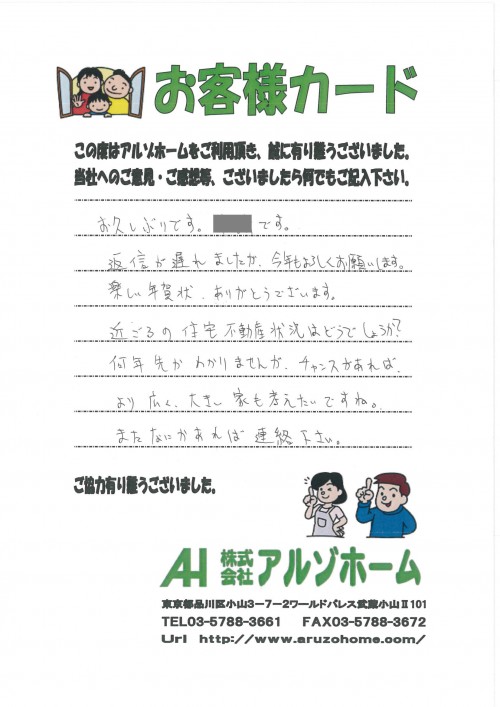 お客様カード
この度はアルゾホームをご利用頂き、誠に有り難うございました。
当社へのご意見・ご感想等、ございましたら何でもご記入下さい。
お久しぶりです。 です。
返信が遅れましたが、今年もよろしくお願いします。
楽しい年賀状、ありがとうございます。
近ごろの住宅不動産状況はどうでしょうか?
何年先かわかりませんが、チャンスがあれば、
より広く、大きい家も考えたいですね。
またなにかあれば連絡下さい。
ご協力有り難うございました。
AH 株式会社 アルゾホーム
東京都品川区小山3-7-2ワールドパレス武蔵小山Ⅱ101
TEL03-5788-3661 FAX03-5788-3672
Url http://www.aruzohome.com/